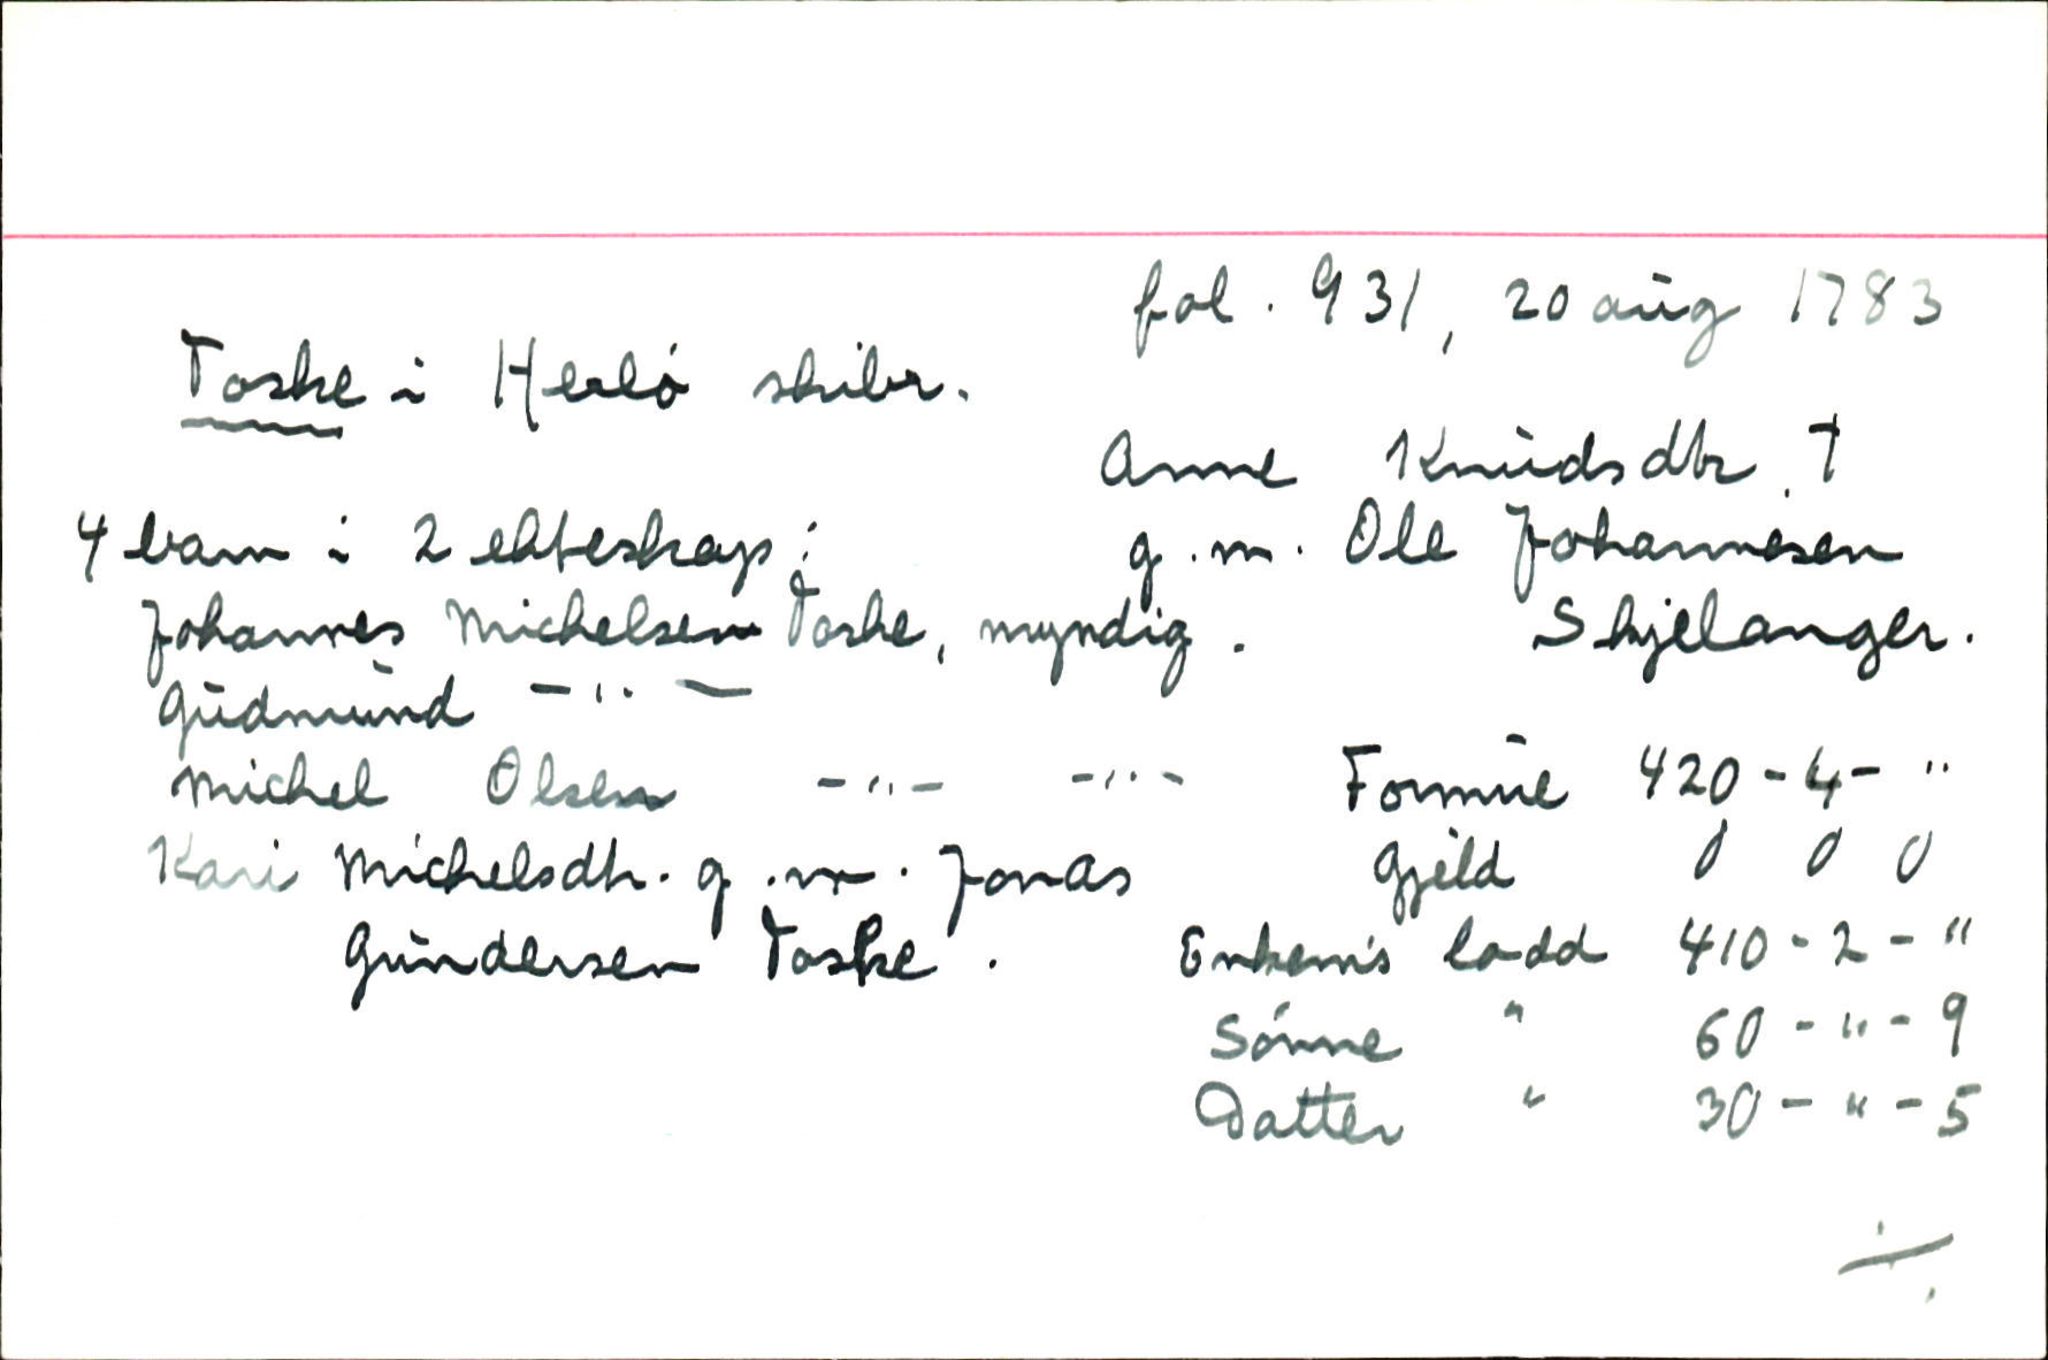 fol. 931, 20 aug 1783
Toske i Herlö skibr.
Anne Knudsdtr. †
g.m. Ole Johannesen
Skjelanger.
4 barn i 2 ekteskap:
Johannes Michelsen Toske, myndig.
Gudmund -"-
Michel Olsen -"- -"-
Kari Michelsdtr. g.m. Jonas
Gundersen Toske.
Formue 420-4-"
Gjeld 0 0 0
Enkem's lodd 410-2-"
Sönne " 60-"-9
Datter " 30-"-5